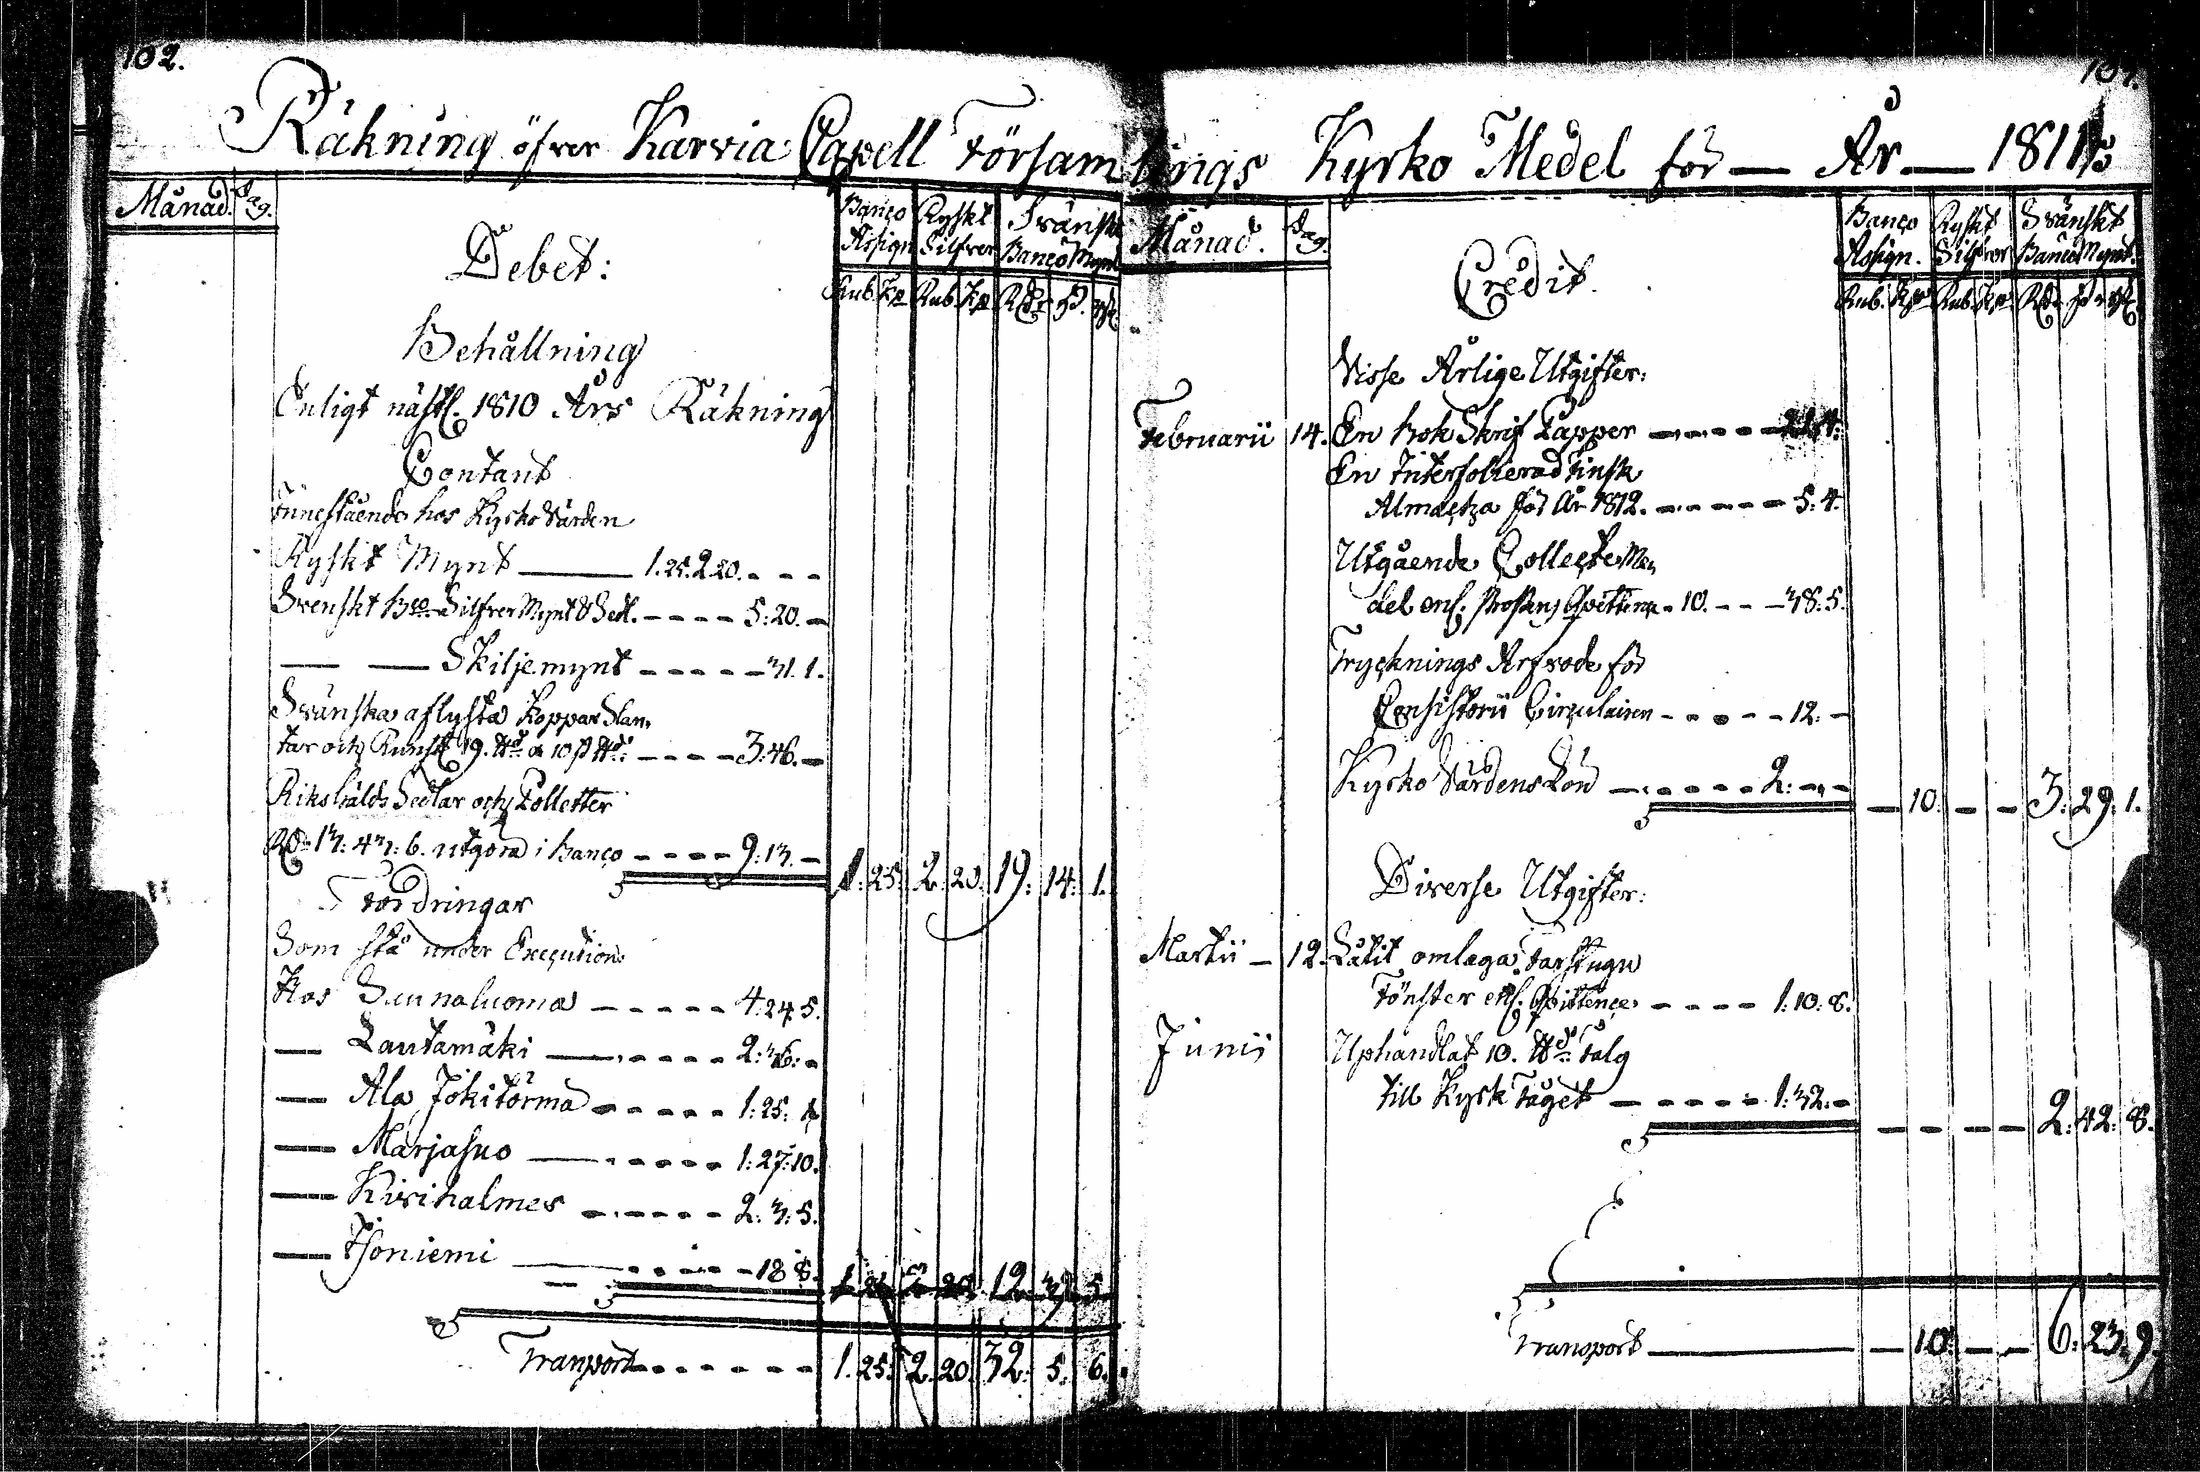 102.
Räkning öfver Karvia Capell Församlings Kyrko Medel för — År — 1811
Månad. Dag.
Banco Assign Ryskt Silfver Svänskt Banco Mynt
Rub. Kp Rub. Kp Rdr ß. rst.
Debet:
Behållning
Enligt nästl. 1810 Års Räkning
Contant
Innestående hos Kyrko Värden
Ryskt Mynt — 1.25. 2.20. - - -
Svenskt Bco Silfver Mynt & Sedl. - - - - 5:20. -
— — Skiljemynt - - - - - 31. 1.
Svänska aflysta Koppar Slan-
tar och Runst. 19. ℔d a 10 ß ℔d: - - - - 3:46. -
Riksgälds Sedlar och Polletter
Rdr 13: 43: 6. utgöra i Banco - - - - 9:13. - 1: 25. 2. 20. 19: 14: 1.
Fordringar
Som stå under Execution:
Hos Suunaluoma - - - - - 4:24. 5.
— Lautamäki - - - - - 2:36: -
— Ala Jokitörmä - - - - - 1:25: 1
— Marjasuo - - - - - 1:27:10.
— Kivihalmes - - - - - 2: 3: 5.
— Isoniemi - - - - - 18 8. 12. 39. 5.
Tranport - - - - - - 1. 25. 2. 20. 32: 5: 6.
103.
Månad. Dag.
Banco Assign. Ryskt Silfver Svänskt Banco Mynt.
Rub. Kp Rub. Kp Rdr ß rst
Credit.
Visse Årlige Utgifter:
Februarii 14. En Bok Skrif Papper - - - - -
En Interfolierad Finsk
Almacka för År 1812. - - - - - 5. 4.
Utgående Collecte Me-
del enl. Prostens Qvittence - 10. - - - 38: 5.
Trycknings Arfvode för
Consistorii Circulairen - - - - - 12. -
Kyrko Värdens Lön - - - - - 2: - - — 10: — — 3: 29: 1.
Diverse Utgifter:
Martii — 12. Låtit omlaga Farstugu
Fönster enl. Qvittence - - - - 1: 10: 8.
Junii Uphandlat 10. ℔d: Talg
till Kyrk Taget - - - - - 1:32: - — — — — 2: 42: 8.
Transport — — 10: — — 6: 23: 9.